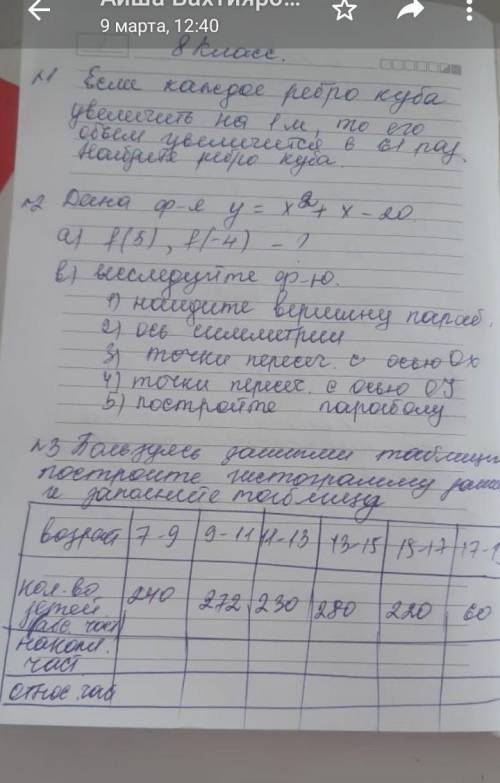 Айша Бахтияро...
9 марта, 12:40
8 класс.
№1 Если каждое ребро куба
увеличить на 1 м, то его
объем увеличится в 61 раз.
Найдите ребро куба.
№2 Дана ф-я y = x² + x - 20
а) f(5), f(-4) - ?
в) исследуйте ф-ю.
1) найдите вершину параб.
2) ось симметрии
3) точки пересеч. с осью Ox
4) точки пересеч. с осью Oy
5) постройте параболу
№3 Пользуясь данными таблицы
постройте гистограмму
и заполните таблицу
возраст 7-9 9-11 11-13 13-15 15-17 17-1
кол-во
детей 240 272 230 280 220 60
абс. част
накопл.
част.
относ. час